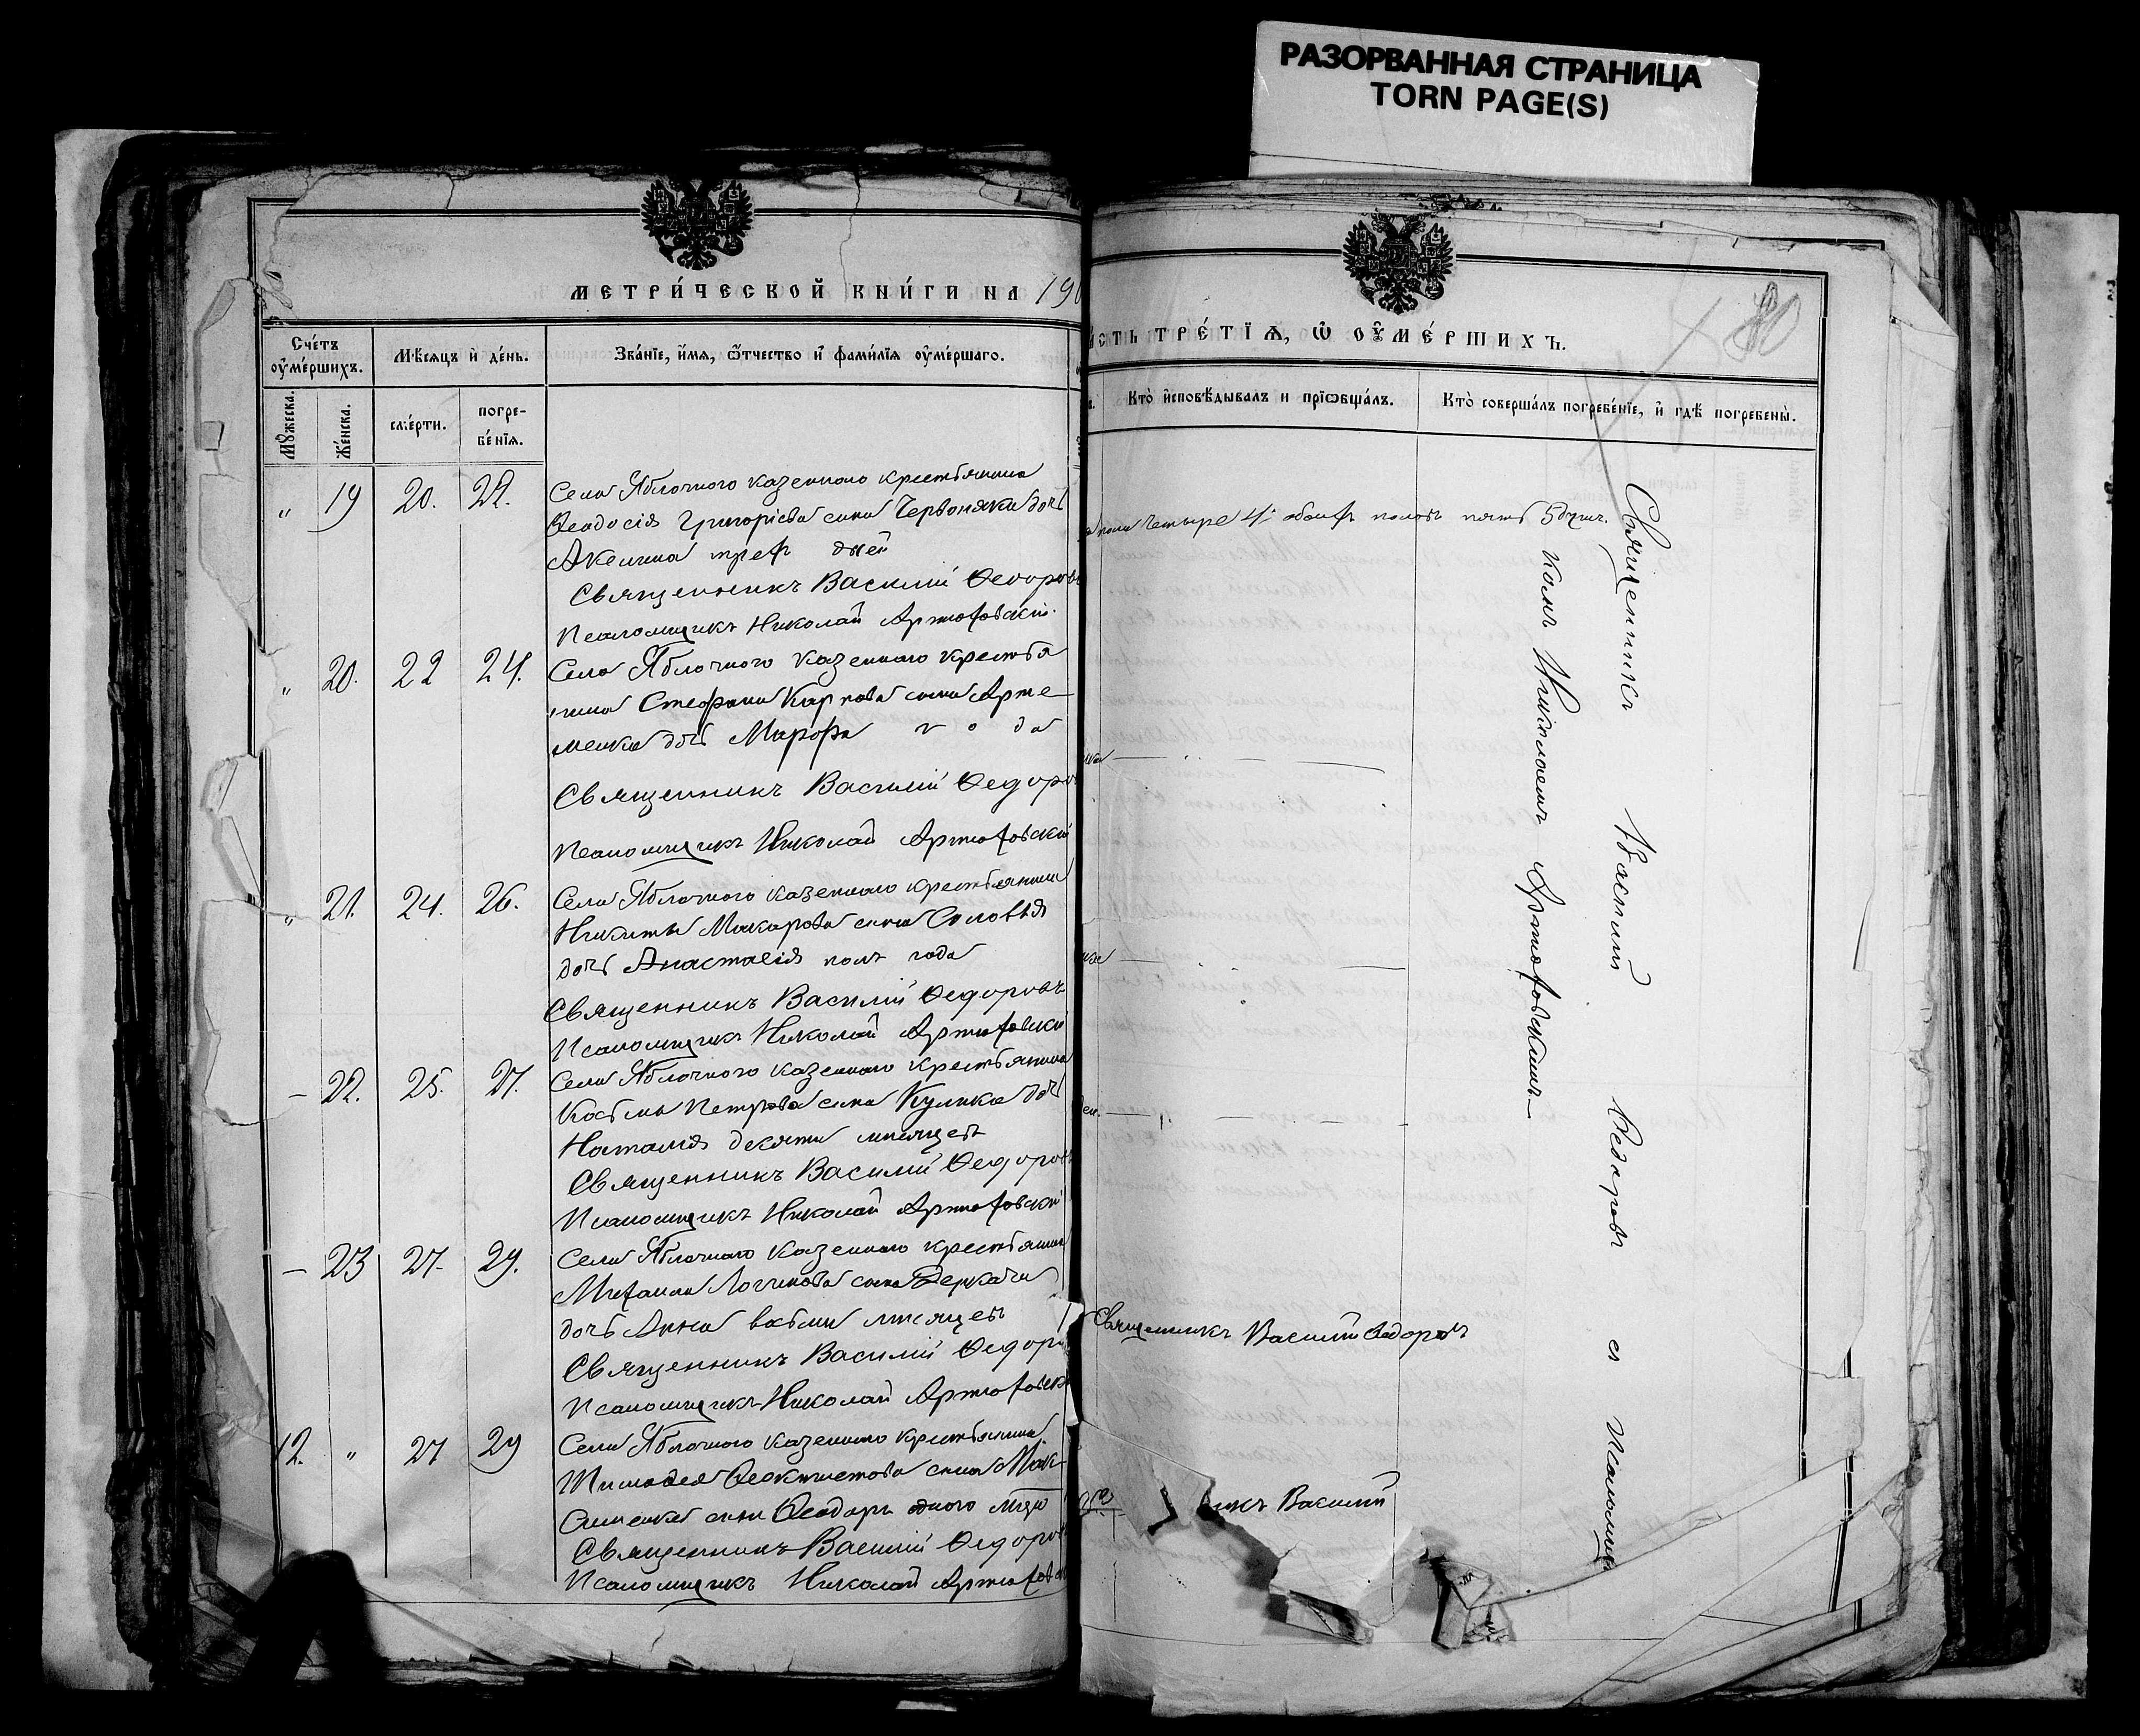 РАЗОРВАННАЯ СТРАНИЦА
TORN PAGE(S)
МЕТРИ́ЧЕСКОЙ КНИ́ГИ НА 190
Сче́тъ ᲂу҆ме́ршихъ.
Мѣ́сяцъ и҆ де́нь.
Зва́нїе, и҆́мя, ѻ҆́тчество и҆ фами́лїя ᲂу҆ме́ршаго.
Мꙋ́жеска.
Же́нска.
сме́рти.
погре-
бе́нїя.
" 19 20. 22.
Села Яблочного казенного крестьянина
Ѳеодосія Григоріева сына Червоняка дочь
Акелина трех дней
Священникъ Василій Ѳеодоровъ
Псаломщикъ Николай Артюховскій.
" 20. 22 24.
Села Яблочного казенного крестья
нина Стефана Карпова сына Арте-
менка дочь Марфа года
Священникъ Василій Ѳедоро
Псаломщикъ Николай Артюховскій
" 21. 24. 26.
Села Яблочного казенного крестьянина
Никиты Макарова сына Соловья
дочь Анастасія полъ года
Священникъ Василій Ѳедоровъ
Псаломщикъ Николай Артюховскій
- 22. 25. 27.
Села Яблочного казенного крестьянина
Косьмы Петрова сына Кулика дочь
Наталія десяти мѣсяцевъ
Священникъ Василій Ѳедоровъ
Псаломщикъ Николай Артюховскій
- 23 27. 29.
Села Яблочного казенного крестьянина
Михаила Логинова сына Деркача
дочь Анна восьми мѣсяцевъ
Священникъ Василій Ѳедоро
Псаломщикъ Николай Артюховск
12. " 27 29
Села Яблочного казенного крестьянина
Тимофея Ѳеоктистова сына Мак-
сименка сынъ Ѳеодоръ одного мѣсяца
Священникъ Василій Ѳедоров
Псаломщикъ Николай Артюхов
а҆́сть тре́тїѧ, ѡ҆ ᲂу҆ме́ршихъ.
80
Кто̀ и҆сповѣ́дывалъ и прїѡбща́лъ.
Кто̀ соверша́лъ погребе́нїе, и҆ гдѣ̀ погребены̀.
пола четыре 4. обоихъ половъ пять 5 душъ.
Священникъ Василій Ѳедоровъ съ псаломщи
комъ Николаемъ Артюховскимъ
Священникъ Василій Ѳедоровъ
икъ Василій